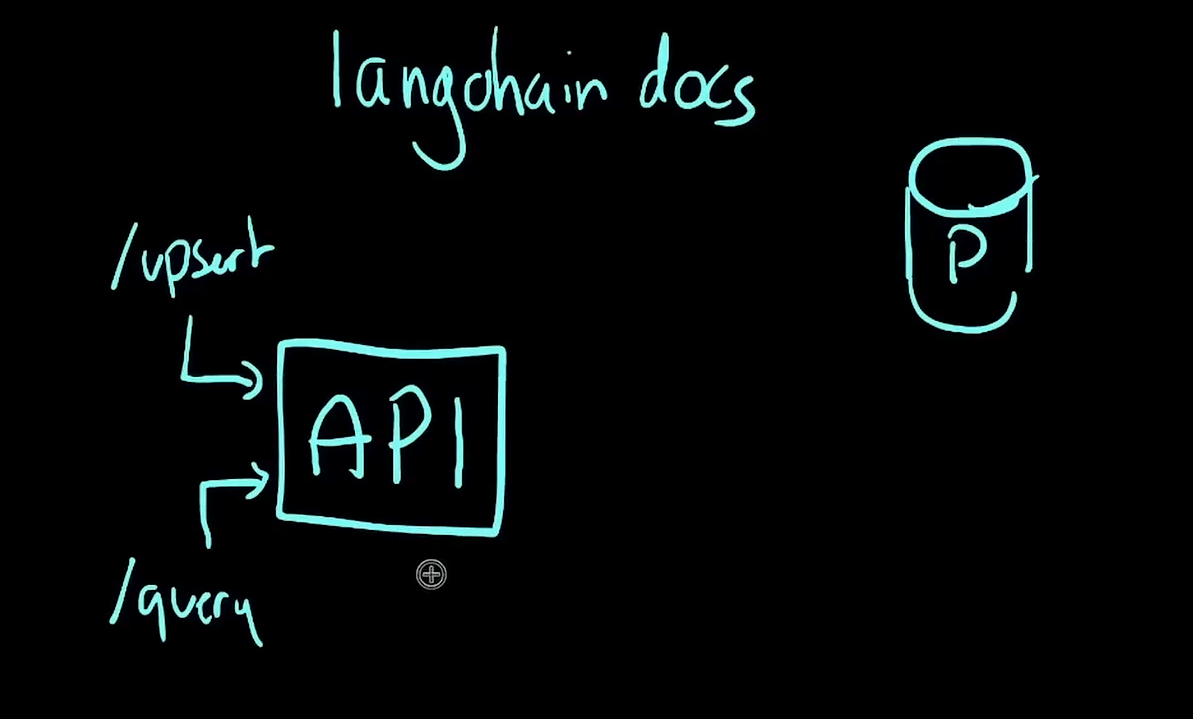 langchain docs
/upsert
P
API
/query